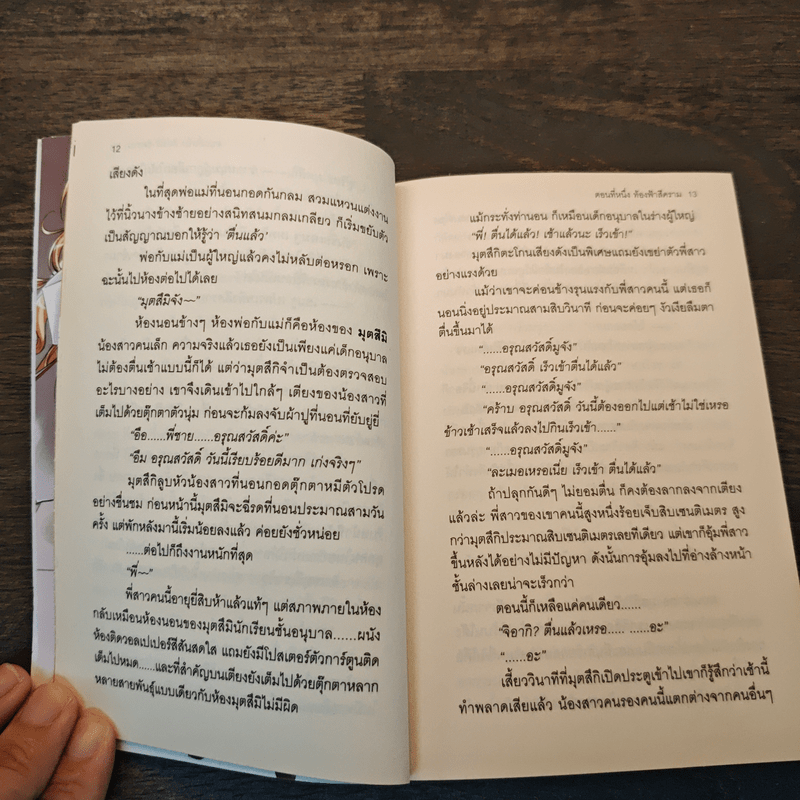 12
เสียงดัง
ในที่สุดพ่อแม่ที่นอนกอดกันกลม สวมแหวนแต่งงาน
ไว้ที่นิ้วนางข้างซ้ายอย่างสนิทสนมกลมเกลียว ก็เริ่มขยับตัว
เป็นสัญญาณบอกให้รู้ว่า ‘ตื่นแล้ว’
พ่อกับแม่เป็นผู้ใหญ่แล้วคงไม่หลับต่อหรอก เพราะ
ฉะนั้นไปห้องต่อไปได้เลย
“มุตสึมิจัง~~”
ห้องนอนข้างๆ ห้องพ่อกับแม่ก็คือห้องของ มุตสึมิ
น้องสาวคนเล็ก ความจริงแล้วเธอยังเป็นเพียงแค่เด็กอนุบาล
ไม่ต้องตื่นเช้าแบบนี้ก็ได้ แต่ว่ามุตสึกิจำเป็นต้องตรวจสอบ
อะไรบางอย่าง เขาจึงเดินเข้าไปใกล้ๆ เตียงของน้องสาวที่
เต็มไปด้วยตุ๊กตาตัวนุ่ม ก่อนจะก้มลงจับผ้าปูที่นอนที่ยับยู่ยี่
“อือ......พี่ชาย......อรุณสวัสดิ์ค่ะ”
“อืม อรุณสวัสดิ์ วันนี้เรียบร้อยดีมาก เก่งจริงๆ”
มุตสึกิลูบหัวน้องสาวที่นอนกอดตุ๊กตาหมีตัวโปรด
อย่างชื่นชม ก่อนหน้านี้มุตสึมิจะฉี่รดที่นอนประมาณสามวัน
ครั้ง แต่พักหลังมานี้เริ่มน้อยลงแล้ว ค่อยยังชั่วหน่อย
......ต่อไปก็ถึงงานหนักที่สุด
“พี่~~”
พี่สาวคนนี้อายุยี่สิบห้าแล้วแท้ๆ แต่สภาพภายในห้อง
กลับเหมือนห้องนอนของมุตสึมินักเรียนชั้นอนุบาล......ผนัง
ห้องติดวอลเปเปอร์สีสันสดใส แถมยังมีโปสเตอร์ตัวการ์ตูนติด
เต็มไปหมด......และที่สำคัญบนเตียงยังเต็มไปด้วยตุ๊กตาหลาก
หลายสายพันธุ์แบบเดียวกับห้องมุตสึมิไม่มีผิด
ตอนที่หนึ่ง ท้องฟ้าสีคราม 13
แม้กระทั่งท่านอน ก็เหมือนเด็กอนุบาลในร่างผู้ใหญ่
“พี่! ตื่นได้แล้ว! เช้าแล้วนะ เร็วเข้า!”
มุตสึกิตะโกนเสียงดังเป็นพิเศษแถมยังเขย่าตัวพี่สาว
อย่างแรงด้วย
แม้ว่าเขาจะค่อนข้างรุนแรงกับพี่สาวคนนี้ แต่เธอก็
นอนนิ่งอยู่ประมาณสามสิบวินาที ก่อนจะค่อยๆ งัวเงียลืมตา
ตื่นขึ้นมาได้
“......อรุณสวัสดิ์มูจัง”
“อรุณสวัสดิ์ เร็วเข้าตื่นได้แล้ว”
“......อรุณสวัสดิ์มูจัง”
“คร้าบ อรุณสวัสดิ์ วันนี้ต้องออกไปแต่เช้าไม่ใช่เหรอ
ข้าวเช้าเสร็จแล้วลงไปกินเร็วเข้า......”
“......อรุณสวัสดิ์มูจัง”
“ละเมอเหรอเนี่ย เร็วเข้า ตื่นได้แล้ว”
ถ้าปลุกกันดีๆ ไม่ยอมตื่น ก็คงต้องลากลงจากเตียง
แล้วล่ะ พี่สาวของเขาคนนี้สูงหนึ่งร้อยเจ็บสิบเซนติเมตร สูง
กว่ามุตสึกิประมาณสิบเซนติเมตรเลยทีเดียว แต่เขาก็อุ้มพี่สาว
ขึ้นหลังได้อย่างไม่มีปัญหา ดังนั้นการอุ้มลงไปที่อ่างล้างหน้า
ชั้นล่างเลยน่าจะเร็วกว่า
ตอนนี้ก็เหลือแค่คนเดียว......
“จิอากิ? ตื่นแล้วเหรอ..... ......อะ”
“......อะ”
เสี้ยววินาทีที่มุตสึกิเปิดประตูเข้าไปเขาก็รู้สึกว่าเช้านี้
ทำพลาดเสียแล้ว น้องสาวคนรองคนนี้แตกต่างจากคนอื่นๆ